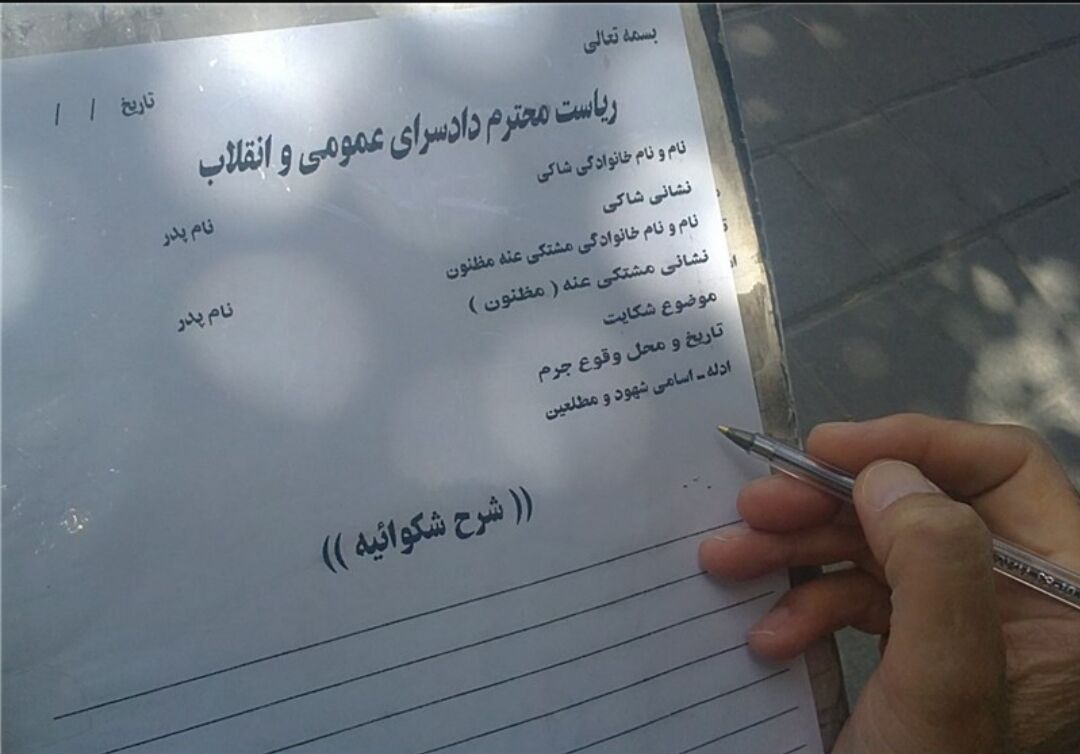 بسمه تعالی
تاریخ / /
ریاست محترم دادسرای عمومی و انقلاب
نام و نام خانوادگی شاکی
نشانی شاکی
نام پدر
نام و نام خانوادگی مشتکی عنه مظنون
نشانی مشتکی عنه ( مظنون )
نام پدر
موضوع شکایت
تاریخ و محل وقوع جرم
ادله - اسامی شهود و مطلعین
(( شرح شکوائیه ))